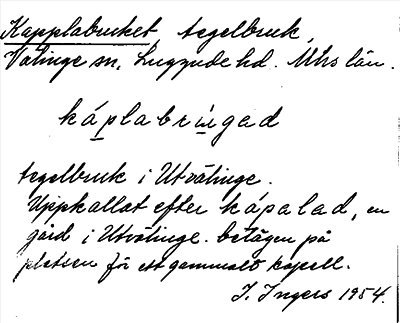 Kapplabruket, tegelbruk,
Välinge sn. Luggude hd. Mhs län.
káplabruged
tegelbruk i Utvälinge.
Uppkallat efter kápalad, en
gård i Utvälinge. belägen på
platsen för ett gammalt kapell.
I. Ingers 1954.